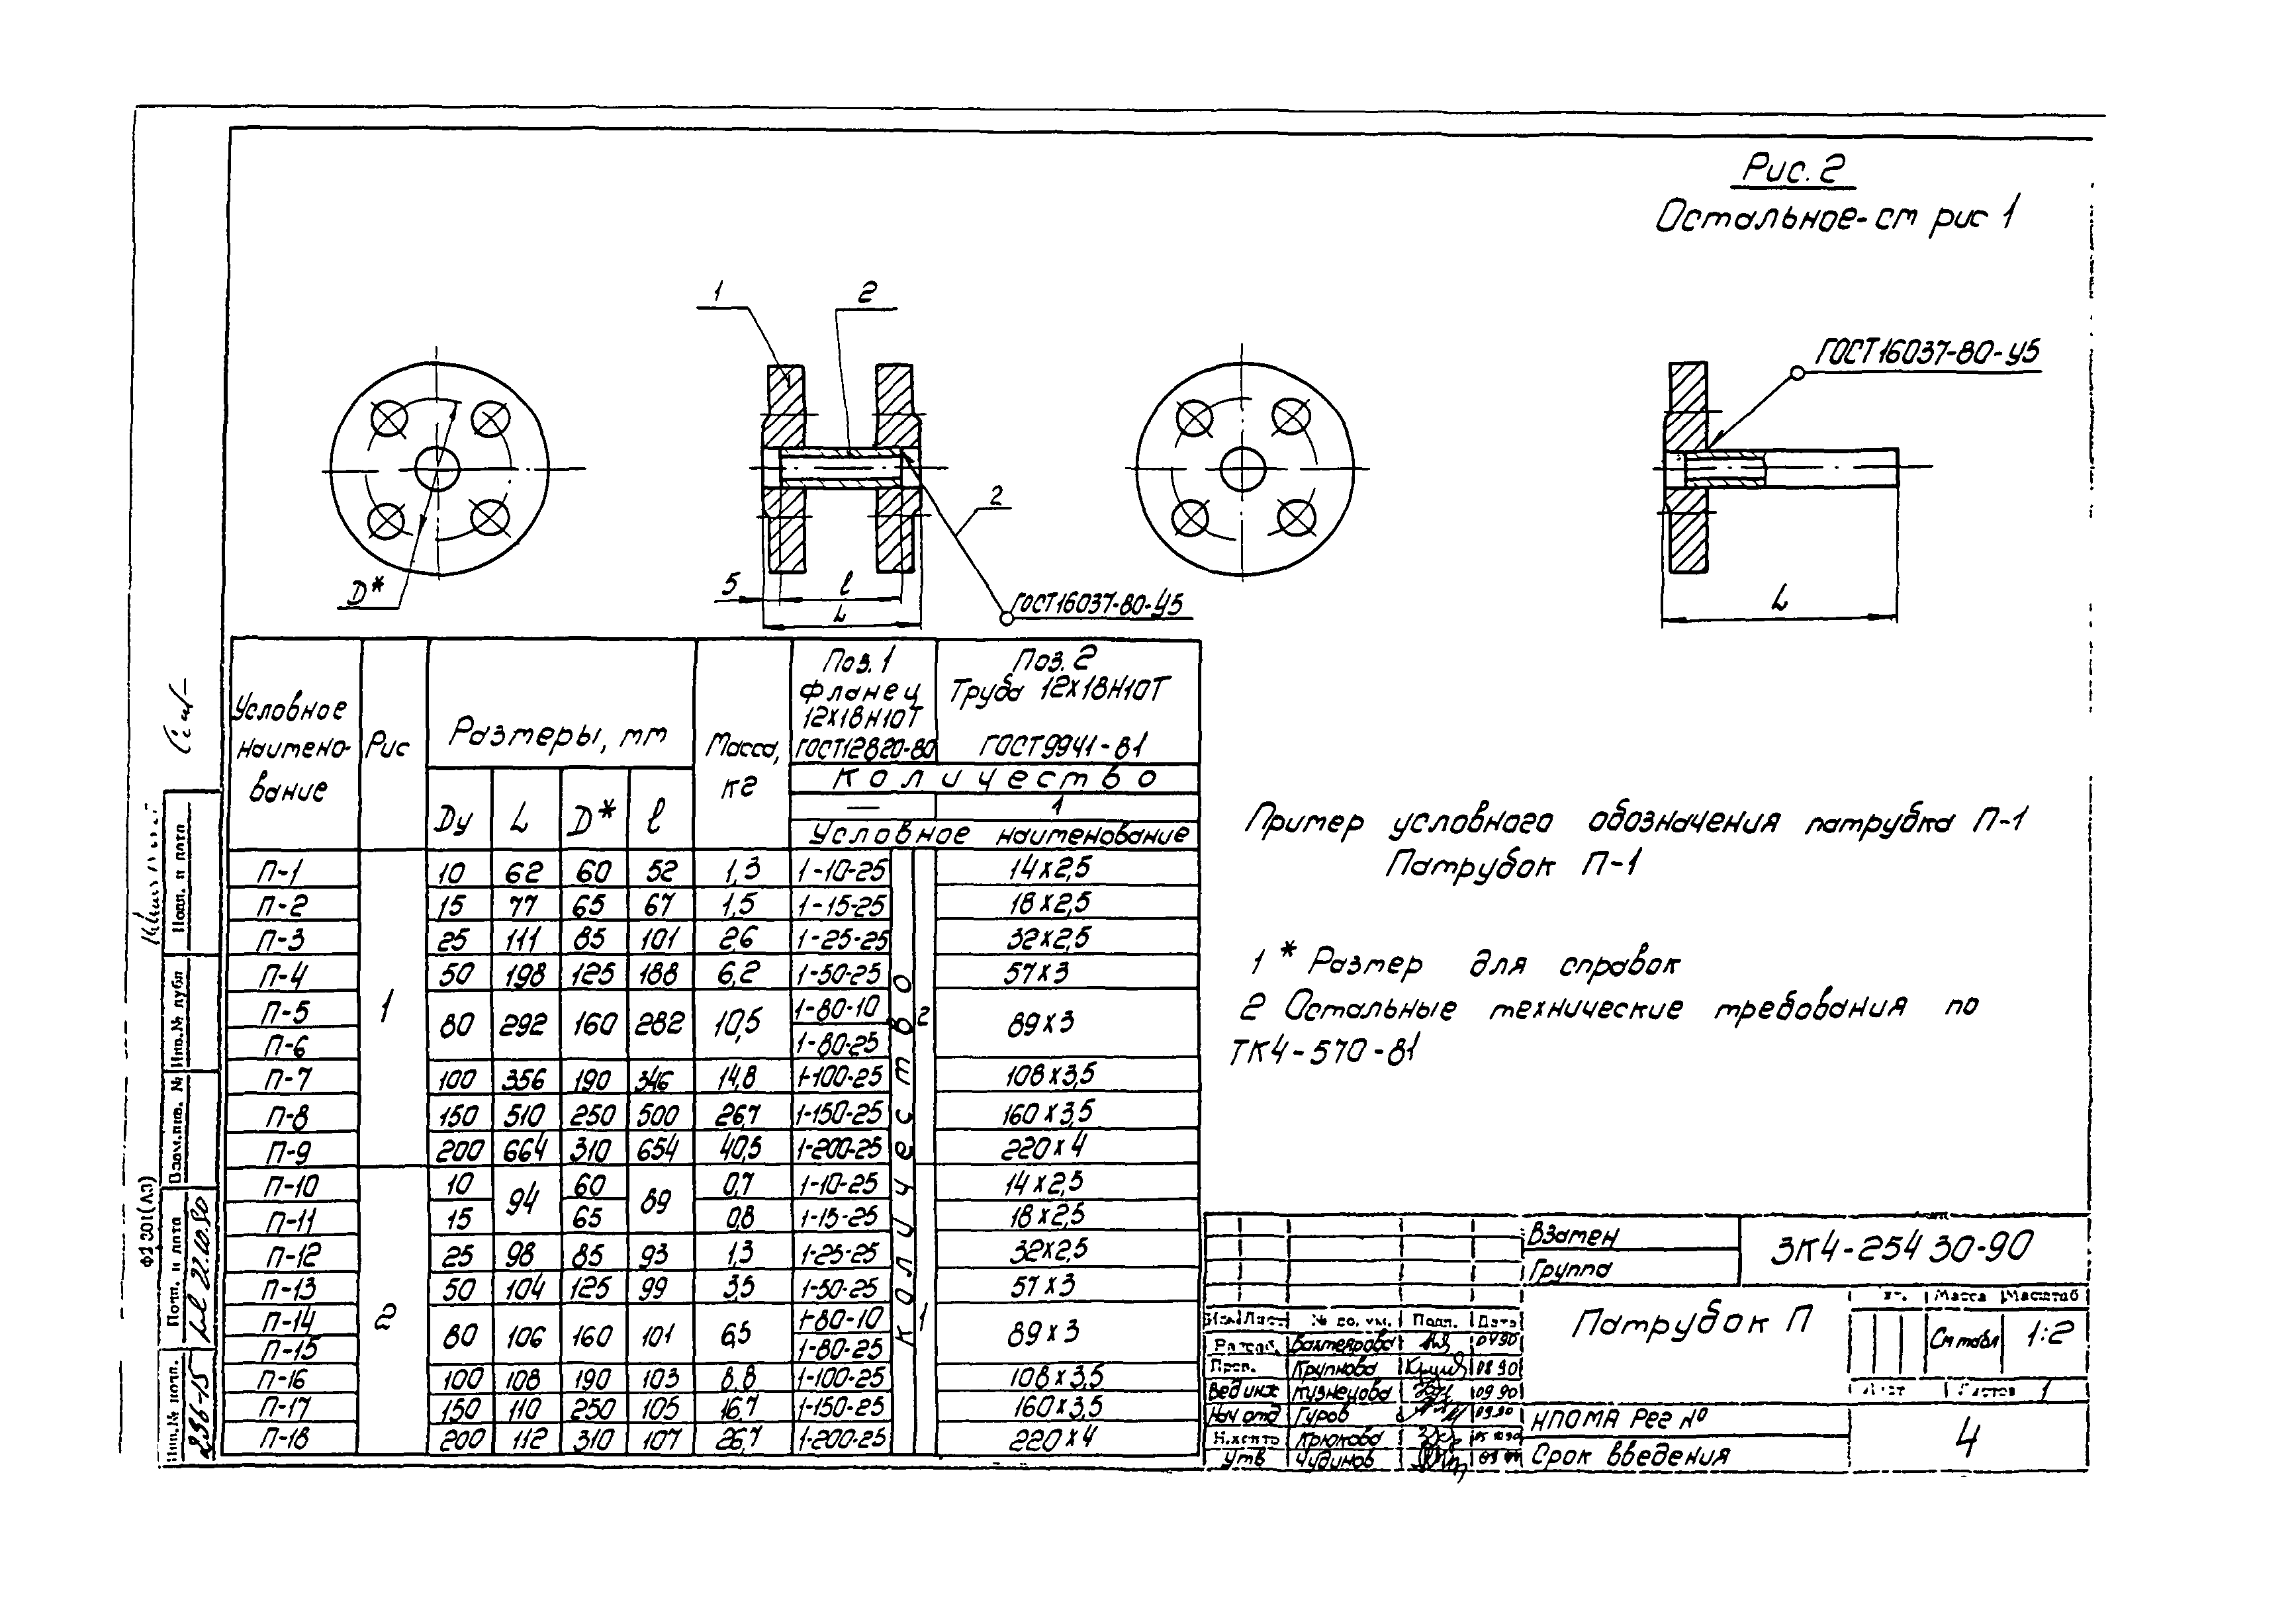 Рис. 2
Остальное-см рис 1
1
2
ГОСТ16037-80-У5
2
D*
5
l
L
ГОСТ16037-80-У5
L
Условное наимено-вание
Рис
Размеры, мм
Масса, кг
Поз. 1 Фланец 12Х18Н10Т ГОСТ12820-80
Поз. 2 Труба 12Х18Н10Т ГОСТ9941-81
Количество
— 1
Dу L D* l
Условное наименование
П-1 1 10 62 60 52 1,3 1-10-25 Количество 2 14х2,5
П-2 15 77 65 67 1,5 1-15-25 18х2,5
П-3 25 111 85 101 2,6 1-25-25 32х2,5
П-4 50 198 125 188 6,2 1-50-25 57х3
П-5 80 292 160 282 10,5 1-80-10 89х3
П-6 1-80-25
П-7 100 356 190 346 14,8 1-100-25 108х3,5
П-8 150 510 250 500 26,7 1-150-25 160х3,5
П-9 200 664 310 654 40,5 1-200-25 220х4
П-10 2 10 94 60 89 0,7 1-10-25 1 14х2,5
П-11 15 65 0,8 1-15-25 18х2,5
П-12 25 98 85 93 1,3 1-25-25 32х2,5
П-13 50 104 125 99 3,5 1-50-25 57х3
П-14 80 106 160 101 6,5 1-80-10 89х3
П-15 1-80-25
П-16 100 108 190 103 8,8 1-100-25 108х3,5
П-17 150 110 250 105 16,7 1-150-25 160х3,5
П-18 200 112 310 107 26,7 1-200-25 220х4
Пример условного обозначения патрубка П-1
Патрубок П-1
1 * Размер для справок
2 Остальные технические требования по
ТК4-570-81
Взамен
Группа
ЗК4-254 30-90
Патрубок П
Масса Масштаб
См табл 1:2
Лист Листов 1
Изм Лист № докум. Подп. Дата
Разраб. Вахтеярова 0790
Пров. Крупнова 08 90
Вед инж Кузнецова 09 90
Нач отд Гуров 09.90
Н.контр Крюкова
Утв Чудинов
НПОМА Рег №
Срок введения
4
Подп. и дата
Инв.№ дубл
Взам.инв. №
Подп. и дата
22.10.90
Инв.№ подл.
236-15